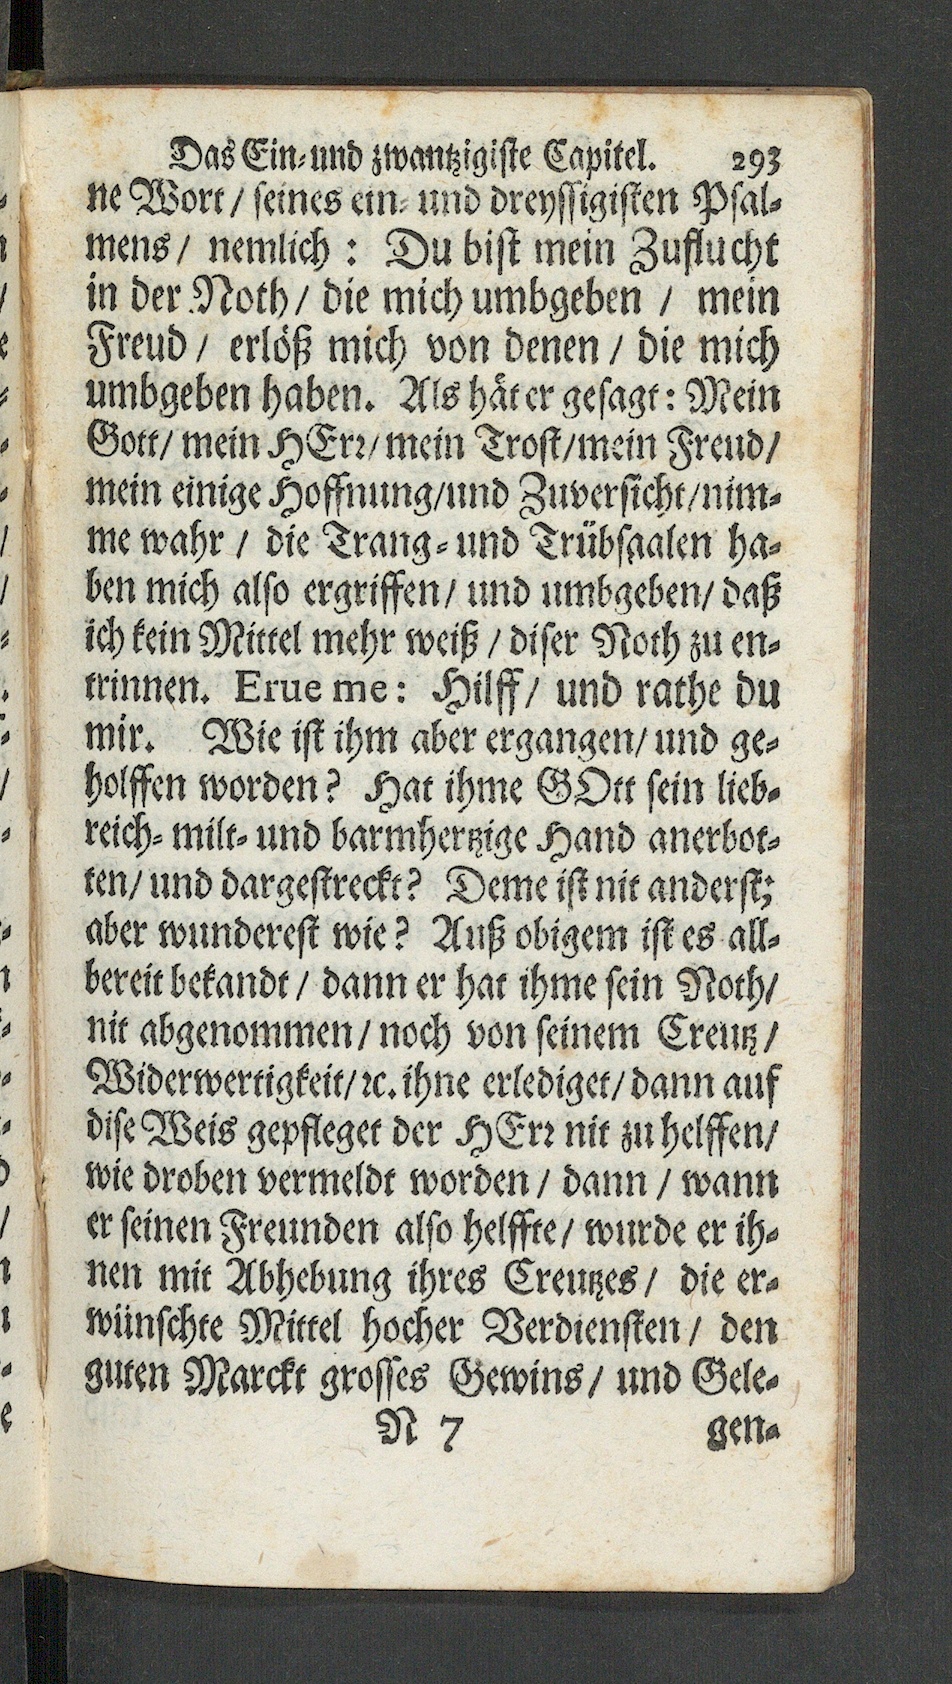 Das Ein- und zwantzigiste Capitel. 293
ne Wort / seines ein- und dreyssigisten Psal-
mens / nemlich : Du bist mein Zuflucht
in der Noth / die mich umbgeben / mein
Freud / erlöß mich von denen / die mich
umbgeben haben. Als hät er gesagt : Mein
Gott / mein HErr / mein Trost / mein Freud /
mein einige Hoffnung / und Zuversicht / nim-
me wahr / die Trang- und Trübsaalen ha-
ben mich also ergriffen / und umbgeben / daß
ich kein Mittel mehr weiß / diser Noth zu en-
trinnen. Erue me : Hilff / und rathe du
mir. Wie ist ihm aber ergangen / und ge-
holffen worden? Hat ihme GOtt sein lieb-
reich- milt- und barmhertzige Hand anerbot-
ten / und dargestreckt? Deme ist nit anderst;
aber wunderest wie? Auß obigem ist es all-
bereit bekandt / dann er hat ihme sein Noth /
nit abgenommen / noch von seinem Creutz /
Widerwertigkeit / ꝛc. ihne erlediget / dann auf
dise Weis gepfleget der HErr nit zu helffen /
wie droben vermeldt worden / dann / wann
er seinen Freunden also helffte / wurde er ih-
nen mit Abhebung ihres Creutzes / die er-
wünschte Mittel hocher Verdiensten / den
guten Marckt grosses Gewins / und Gele-
N 7 gen-